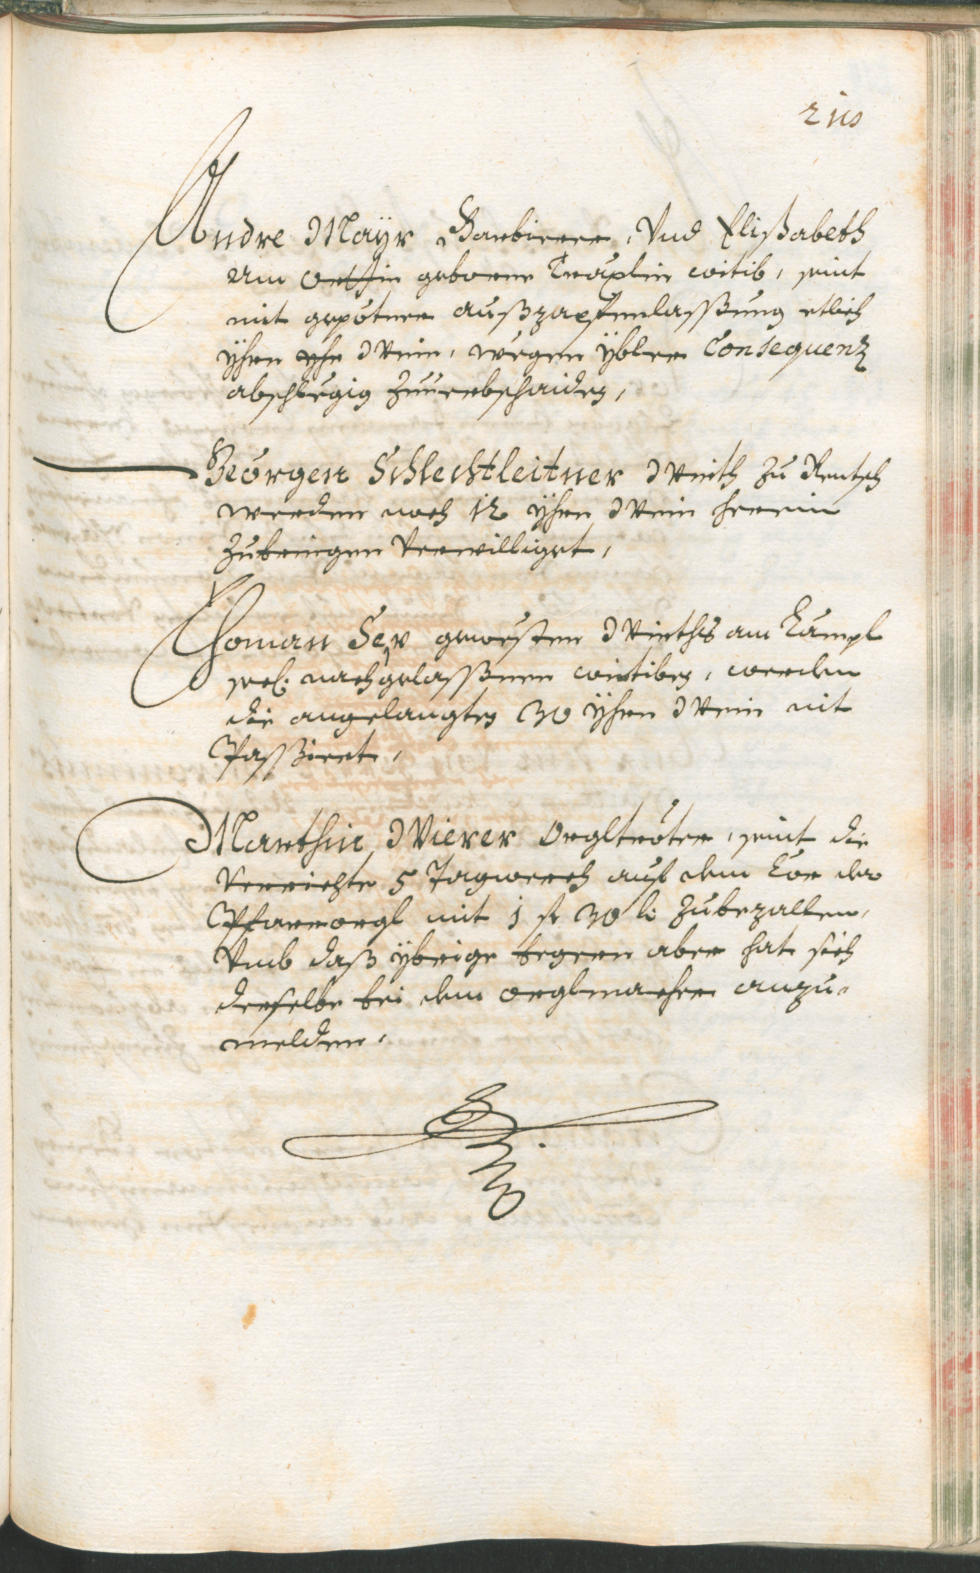 210
Andre Mayr Barbierer, Vnd Elißabeth
Am geborne Tröxlin witib, seint
mit gepotner außzapfenlassung etlich
Yhrn Wein, wegen yblen Consequenz
abschlegig Zuuerbschaiden,
Geörgen Schlechtleitner Wirth Zu Rentsch
werden noch 12 Yhrn Wein herein
Zubringen Verwilligt,
Thoman gewesten Wirths am Kämpl
sel: nachgelassnen wittiben, werden
die angelangten 30 Yhrn Wein nit
Passiert,
Marthin Wierer Orgltröter, seint die
Verrichte 5 Tagwerch auf dem Cor der
Pfarrorgl mit 1 fl 30 kr Zubezallen,
Vmb daß ybrige begern aber hat sich
derselbe bei dem orglmacher anzu-
melden.